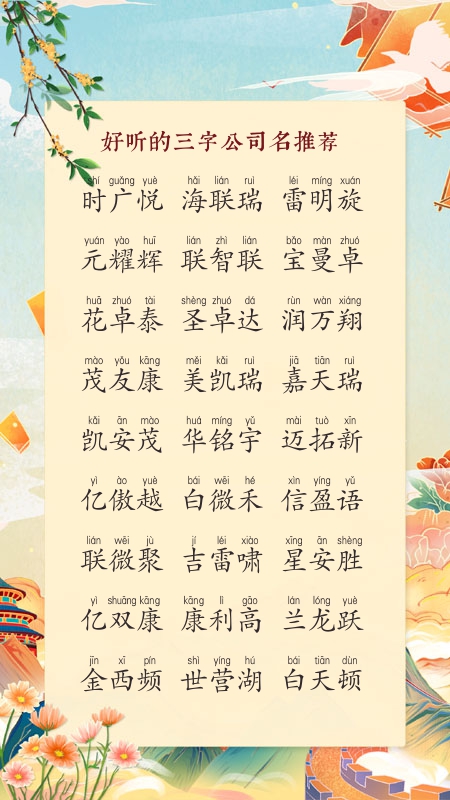 好听的三字公司名推荐
shí guǎng yuè hǎi lián ruì léi míng xuán
时广悦 海联瑞 雷明旋
yuán yào huī lián zhì lián bǎo màn zhuó
元耀辉 联智联 宝曼卓
huā zhuó tài shèng zhuó dá rùn wàn xiáng
花卓泰 圣卓达 润万翔
mào yǒu kāng měi kǎi ruì jiā tiān ruì
茂友康 美凯瑞 嘉天瑞
kǎi ān mào huá míng yǔ mài tuò xīn
凯安茂 华铭宇 迈拓新
yì ào yuè bái wēi hé xìn yíng yǔ
亿傲越 白微禾 信盈语
lián wēi jù jí léi xiào xīng ān shèng
联微聚 吉雷啸 星安胜
yì shuāng kāng kāng lì gāo lán lóng yuè
亿双康 康利高 兰龙跃
jīn xī pín shì yíng hú bái tiān dùn
金西频 世营湖 白天顿